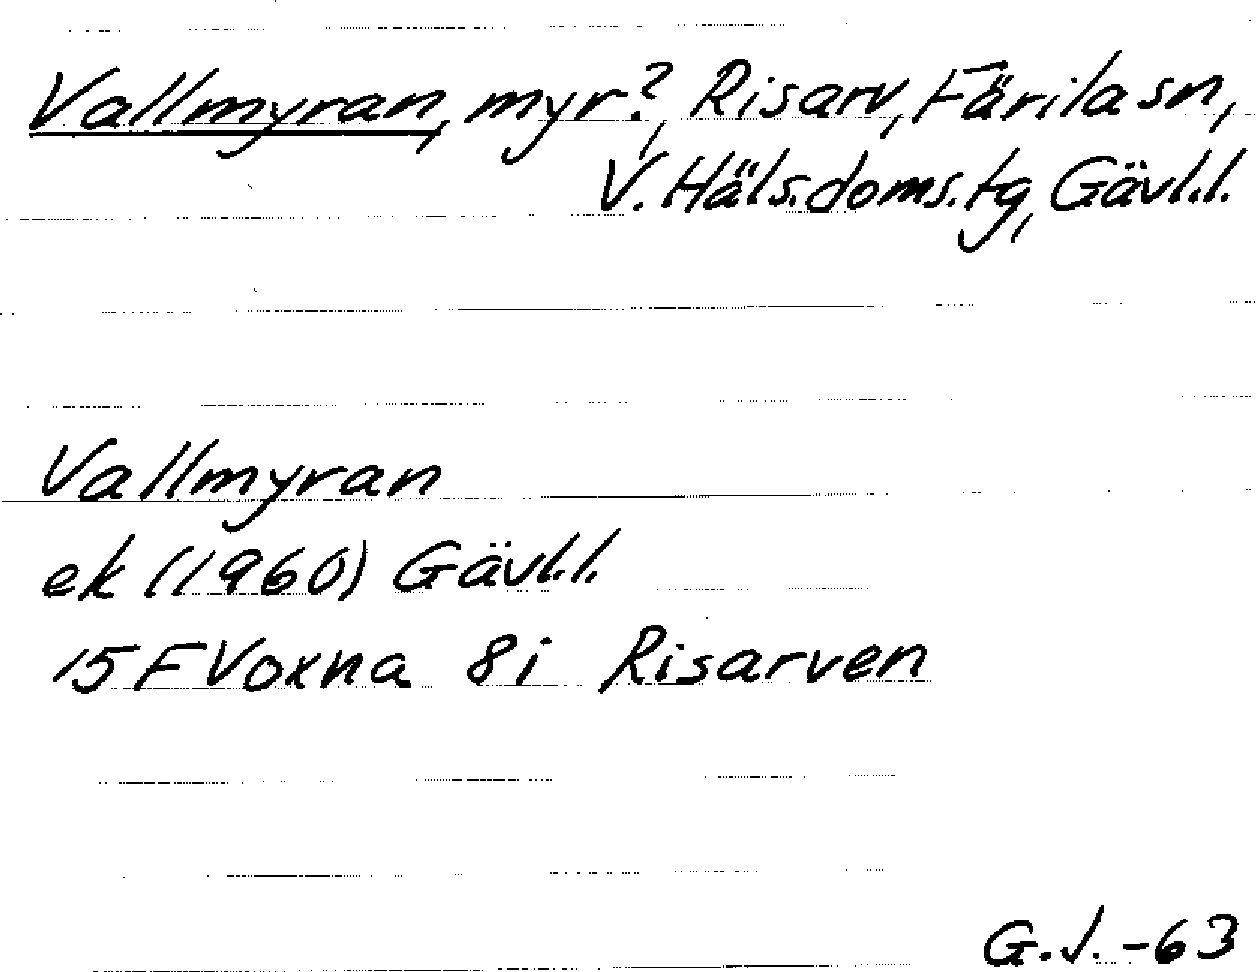 Vallmyran, myr?, Risarv, Färila sn,
V. Häls.doms.tg, Gävl.l.
Vallmyran
ek (1960) Gävl.l.
15F Voxna 8i Risarven
G.J.-63